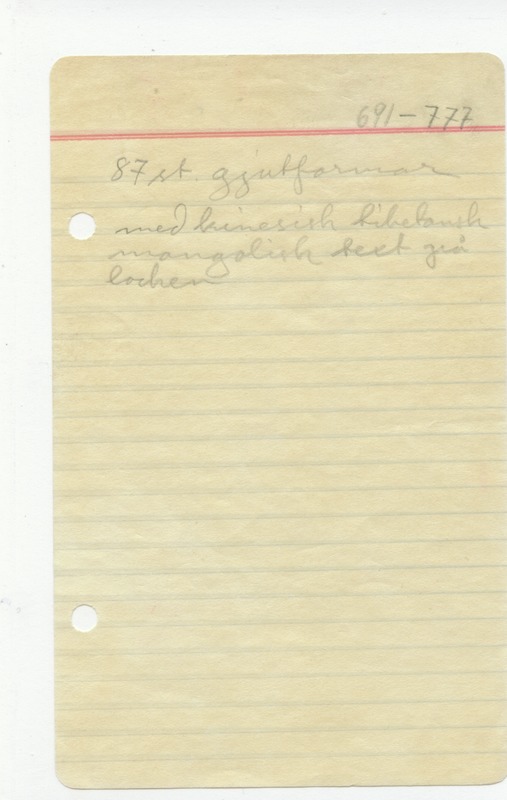 691-777
87 st. gjutformar
med kinesisk tibetansk
mongolisk text på
locken